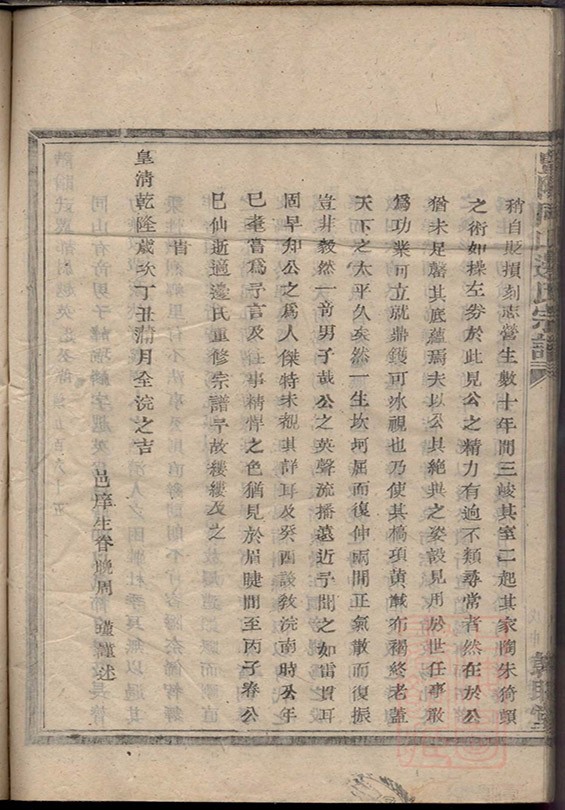 稍自貶損刻志營生數十年間三竣其室二起其家陶朱猗頓
之術如操左券於此見公之精力有逈不類尋常者然在於公
猶未足罄其底蘊焉夫以公具絶異之姿設見用於世任事敢
爲功業可立就鼎鑊可冰視也乃使其槁項黃馘布褐終老蓋
天下之太平久矣然一生坎坷屈而復伸兩間正氣散而復振
豈非毅然一奇男子哉公之英聲流播遠近予聞之如雷貫耳
固早知公之爲人傑特未覩其詳耳及癸酉設教浣南時公年
已耄嘗爲予言及往事精悍之色猶見於眉睫間至丙子春公
已仙逝適邊氏重修宗譜予故縷縷及之
旹
皇淸乾隆歲次丁丑蒲月全浣之吉
邑庠生眷晚周 瑾謹述
邊氏宗譜